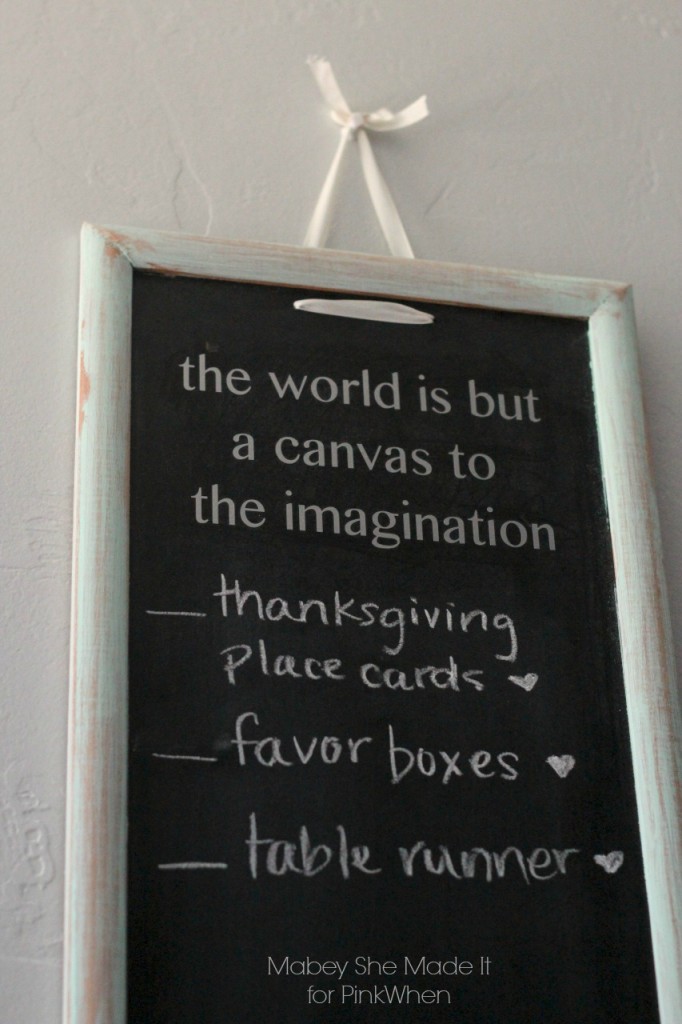 the world is but
a canvas to
the imagination
__ thanksgiving
place cards ♥
__ favor boxes ♥
__ table runner ♥
Mabey She Made It
for PinkWhen